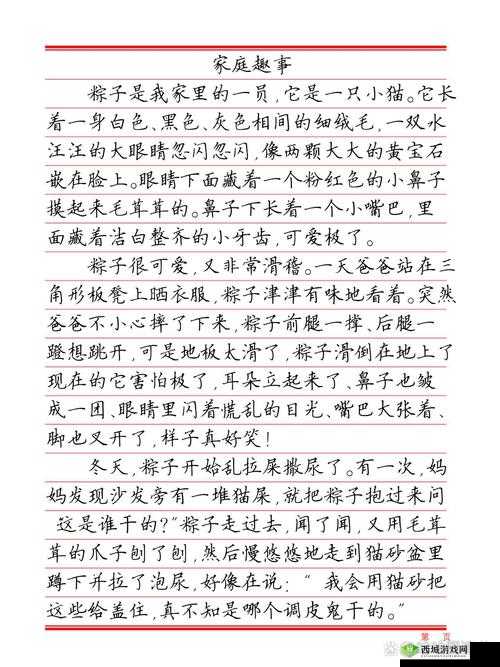 家庭趣事
粽子是我家里的一员,它是一只小猫。它长
着一身白色、黑色、灰色相间的细绒毛,一双水
汪汪的大眼睛忽闪忽闪,像两颗大大的黄宝石
嵌在脸上。眼睛下面藏着一个粉红色的小鼻子
摸起来毛茸茸的。鼻子下长着一个小嘴巴,里
面藏着洁白整齐的小牙齿,可爱极了。
粽子很可爱,又非常滑稽。一天爸爸站在三
角形板凳上晒衣服,粽子津津有味地看着。突然
爸爸不小心摔了下来,粽子前腿一撑、后腿一
蹬想跳开,可是地板太滑了,粽子滑倒在地上了
现在的它害怕极了,耳朵立起来了、鼻子也皱
成一团、眼睛里闪着慌乱的目光、嘴巴大张着、
脚也叉开了,样子真好笑!
冬天,粽子开始乱拉屎撒尿了。有一次,妈
妈发现沙发旁有一堆猫屎,就把粽子抱过来问
这是谁干的?"粽子走过去,闻了闻,又用毛茸
茸的爪子刨了刨,然后慢悠悠地走到猫砂盆里
蹲下并拉了泡尿,好像在说:"我会用猫砂把
这些给盖住,真不知是哪个调皮鬼干的。"
第 页
西城游戏网